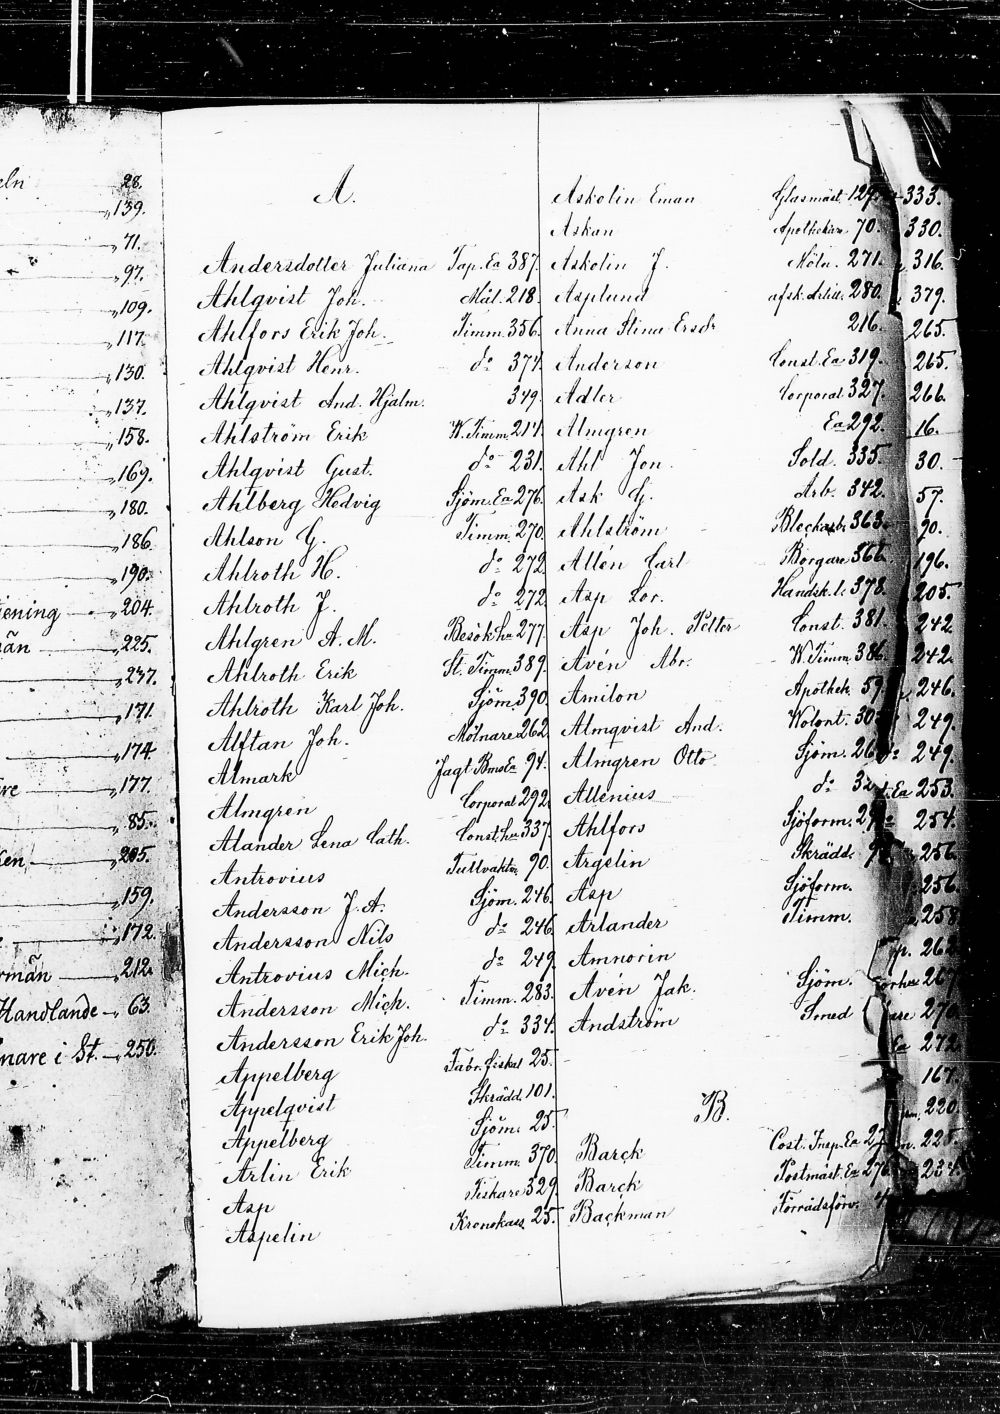 eln 28.
139.
71.
97.
109.
117.
130.
137.
158.
169.
180.
186.
190.
ening 204.
225.
237.
171.
174.
177.
85.
ken 205.
159.
172.
rmän 212.
Handlande 63.
nare i St. 250.
A.
Andersdotter Juliana Tap. Ea 387.
Ahlqvist Joh. Mål. 218.
Ahlfors Erik Joh. Timm. 356.
Ahlqvist Henr. do 374.
Ahlqvist And. Hjalm. 349.
Ahlström Erik W. Timm. 214.
Ahlqvist Gust. do 231.
Ahlberg Hedvig Sjöm. Ea 276.
Ahlson G. Timm. 270.
Ahlroth H. do 272.
Ahlroth J. do 272.
Ahlgren A. M. Besök.hu 277.
Ahlroth Erik St. Timm. 389.
Ahlroth Karl Joh. Sjöm. 390.
Alftan Joh. Mölnare 262.
Almark Jagt Bms Ea 94.
Almgren Corporal 292.
Alander Lena Cath. Const. hu 337.
Antrovius Tullvaktm. 90.
Andersson J. A. Sjöm. 246.
Andersson Nils do 246.
Antrovius Mich. do 249.
Andersson Mich. Timm. 283.
Andersson Erik Joh. do 334.
Appelberg Fabr. fiskal 25.
Appelqvist Skrädd. 101.
Appelberg Sjöm. 25.
Arlin Erik Timm. 370.
Asp Fiskare 329.
Aspelin Kronokass. 25.
Askolin Eman Glasmäst. 129.
Askan Apothekare 70.
Askolin J. Möln. 271.
Asplund afsk. Artill. 280.
Anna Stina Ersdr 216.
Anderson Const. Ea 319.
Adler Corporal 327.
Almgren Ea 292.
Ahl Jon. Sold. 335.
Ask G. Arb. 342.
Ahlström Bleckarb. 363.
Allén Carl Borgare 366.
Asp Lor. Handsk. 378.
Asp Joh. Petter Const. 381.
Avén Abr. W. Timm. 386.
Amilon Apothek. 59.
Almqvist And. Wolont. 30
Almgren Otto Sjöm. 26
Allenius do 32
Ahlfors Sjöform. 2
Argelin Skrädd. 9
Asp Sjöform.
Arlander Timm.
Amnorin
Avén Jak. Sjöm.
Andström Smed
B.
Barck Cost. Insp. Ea 27
Barck Postmäst. Ea 276
Backman Förrådsförv. 4
333.
330.
316.
379.
265.
265.
266.
16.
30.
57.
90.
196.
205.
242.
242.
246.
249.
249.
Ea 253.
254.
256.
256.
258
262
267
270.
Ea 272
167.
220.
225.
234.